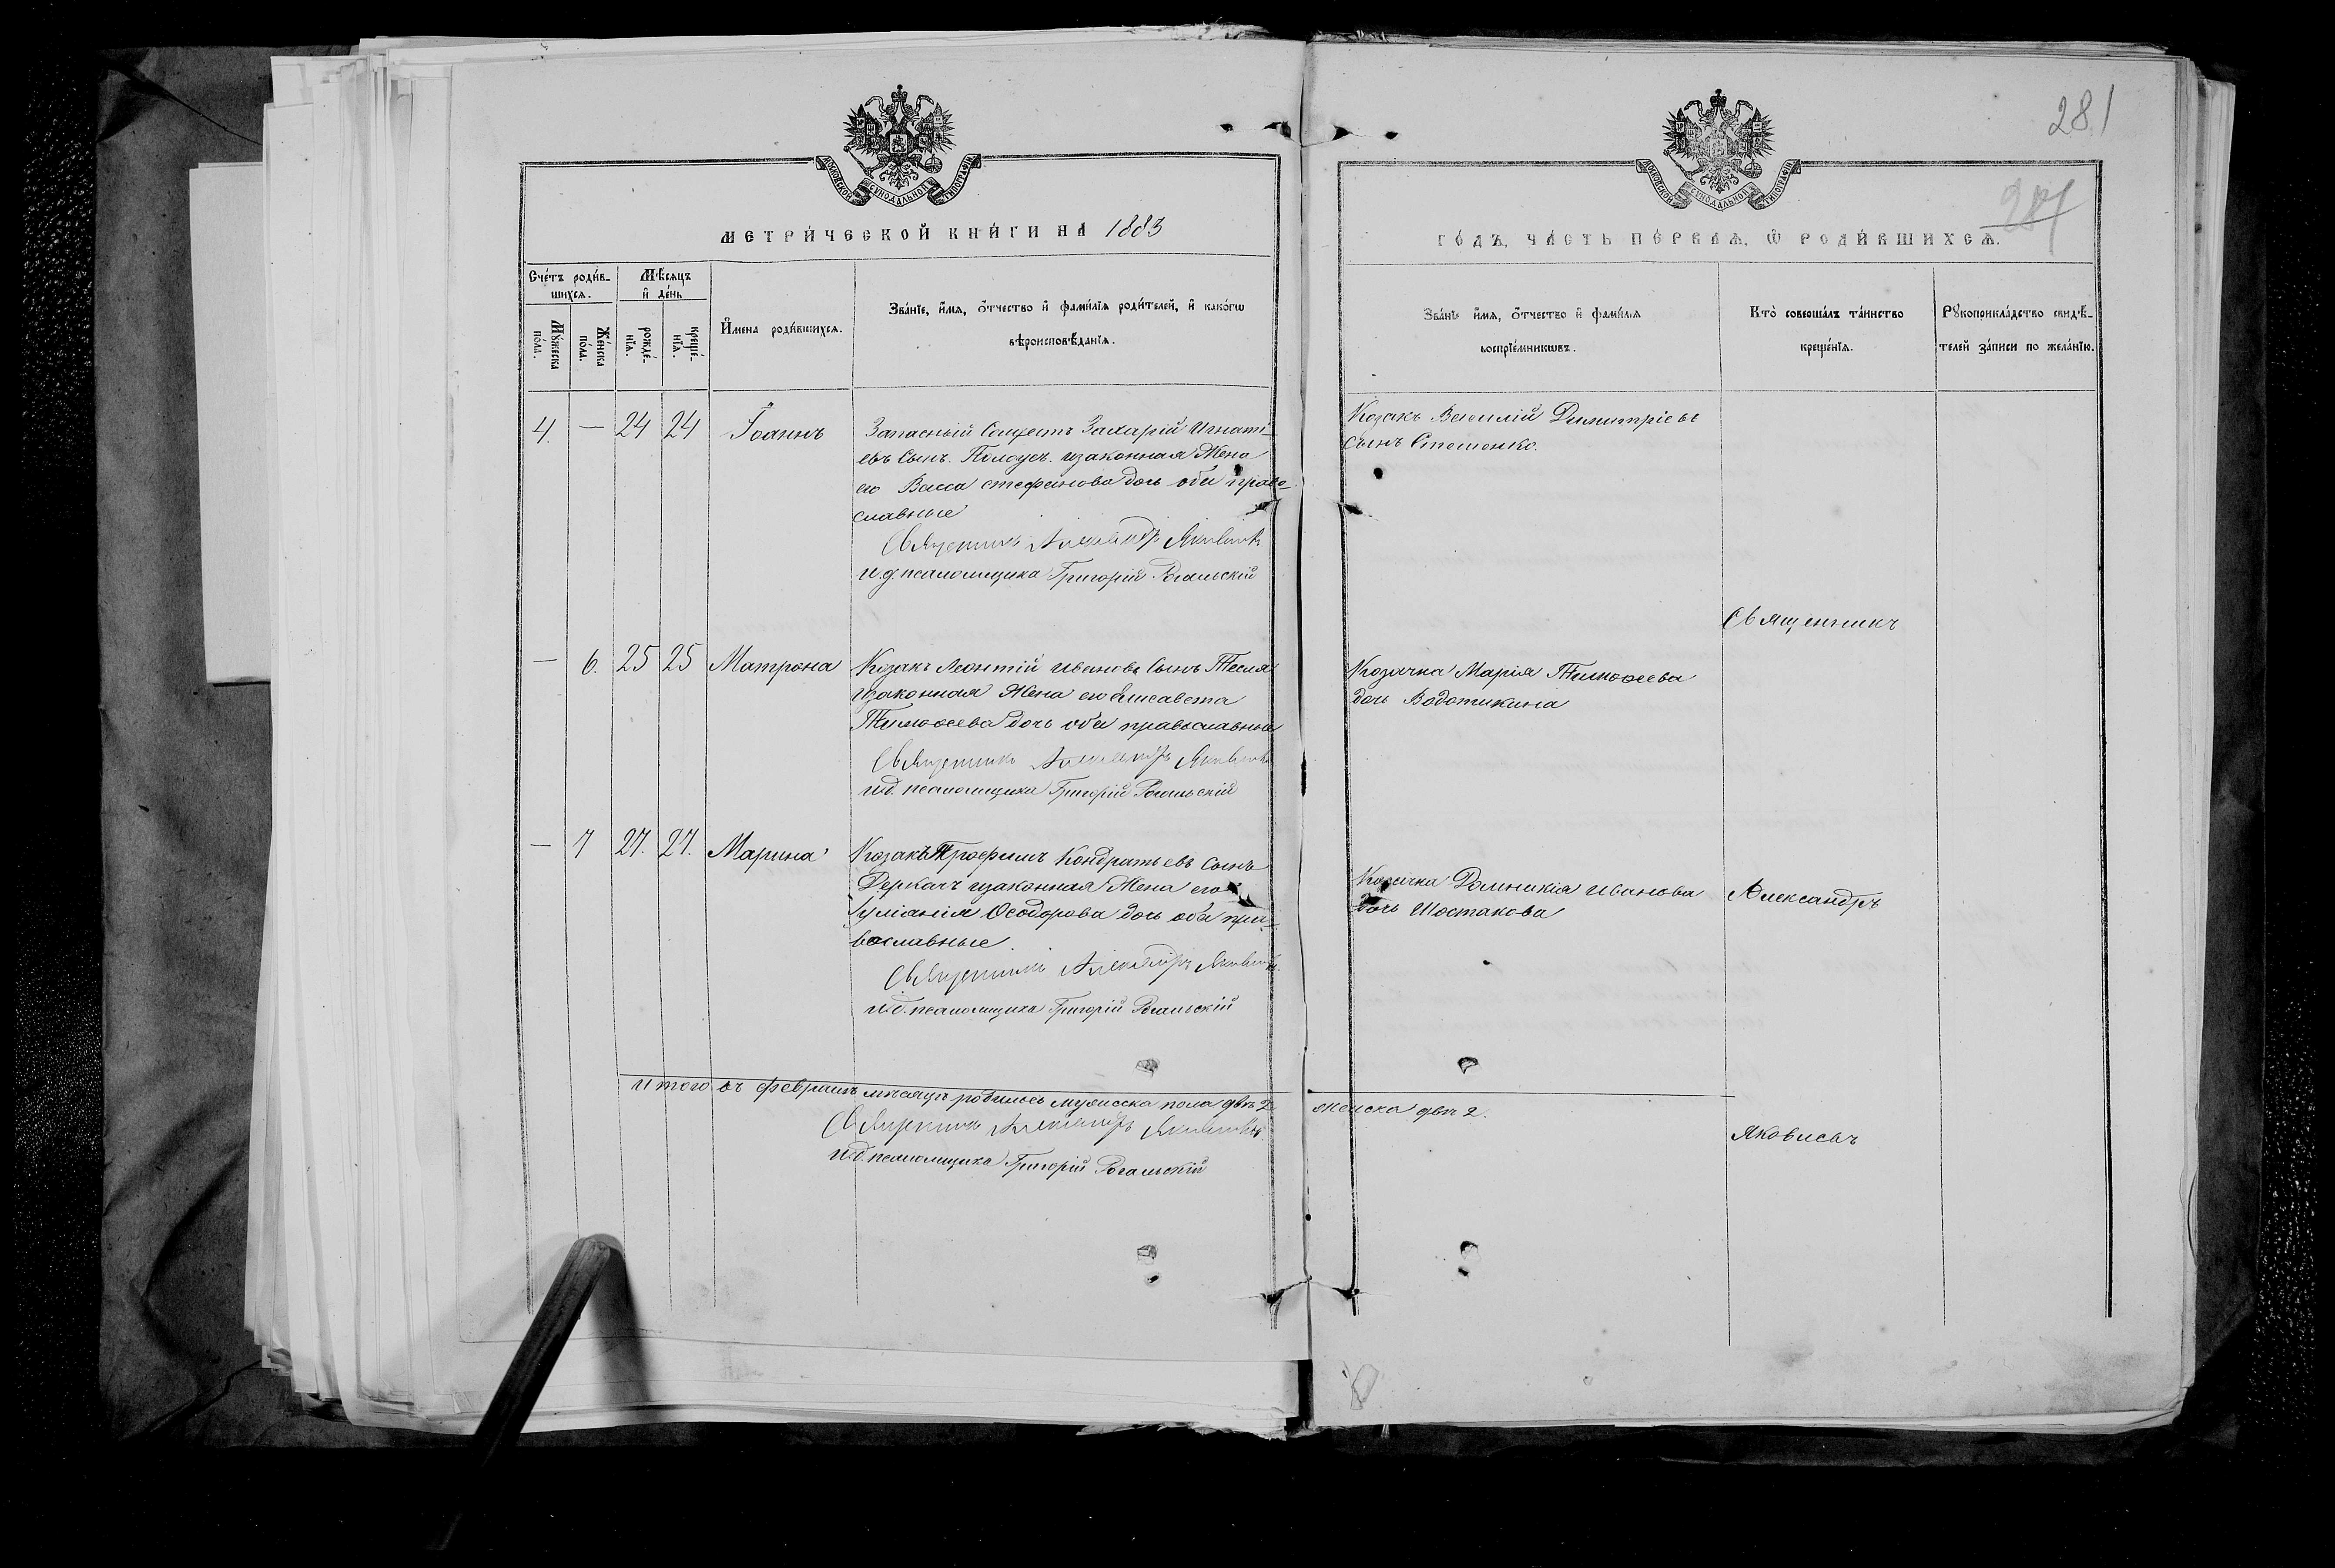 281
МОСКОВСКОЙ СѴНОДАЛЬНОЙ ТИПОГРАФІИ
МОСКОВСКОЙ СѴНОДАЛЬНОЙ ТИПОГРАФІИ
МЕТРИ́ЧЕСКОЙ КНИ́ГИ НА 1883
ГО́ДЪ, ЧА́СТЬ ПЕ́РВАѦ, Ѽ РОДИ́ВШИХСѦ.
Сче́тъ роди́в-
шихсѧ.
Мꙋ́жеска по́ла.
Же́нска по́ла.
Мѣ́сѧцъ
и҆ де́нь
рожде́-нїѧ.
креще́-нїѧ.
И҆мена роди́вшихсѧ.
Зва́нїе, и҆́мѧ, ѻ҆́тчество и҆ фами́лїѧ роди́телей, и҆ како́гѡ
вѣроисповѣ́данїѧ.
Зва́нїе и҆́мѧ, ѻ҆́тчество и҆ фами́лїѧ
воспрїе́мникѡвъ.
Кто̀ соверша́лъ та́инство
креще́нїѧ.
Рꙋкоприкла́дство свидѣ́-
телей за́писи по жела́нїю.
4. — 24 24 Іоаннъ
Запасный Солдатъ Захарій Игнаті-
евъ Сынъ. изаконная Жена
его Васса стефанова дочь оба право-
славные
Священникъ Александръ Яковичъ
и.д. псаломщика Григорій Рогальскій
Козакъ Василій Димитріевъ
Сынъ
— 6. 25 25 Матрона
Козакъ Леонтій Ивановъ Сынъ Тесля
изаконная Жена его Елисавета
Тимоѳеева дочь оба православные
Священникъ Александръ Яковичъ
и.д. псаломщика Григорій Рогальскій
Козачка Марія Тимоѳеева
дочь
Священникъ
— 7 27. 27. Марина
Козакъ Трофимъ Кондратьевъ Сынъ
Деркачъ изаконная Жена его
Іуліанія Ѳеодорова дочь оба пра-
вославные
Священникъ Александръ Яковичъ
и.д. псаломщика Григорій Рогальскій
Козачка Домникія Иванова
дочь Шостакова
Александръ
Итого въ февралѣ мѣсяцѣ родилось мужеска пола двѣ 2 женска двѣ 2.
Священникъ Александръ Яковичъ
и.д. псаломщика Григорій Рогальскій